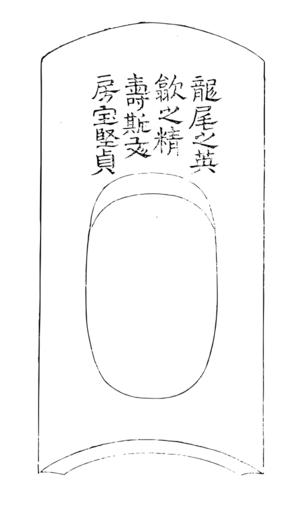 龍尾之英
歙之精
壽斯文
房宝堅貞